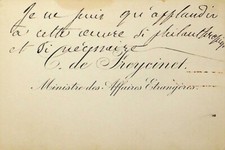 Je ne puis qu'applaudir
à cette œuvre si philanthropique
et si nécessaire
C. de Freycinet.
Ministre des Affaires Etrangères.